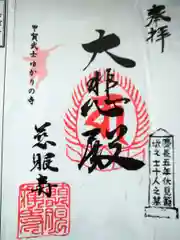 奉拝
慶長五年伏見籠
城之士十人之墓
大悲殿
甲賀武士
ゆかりの寺
慈眼寺